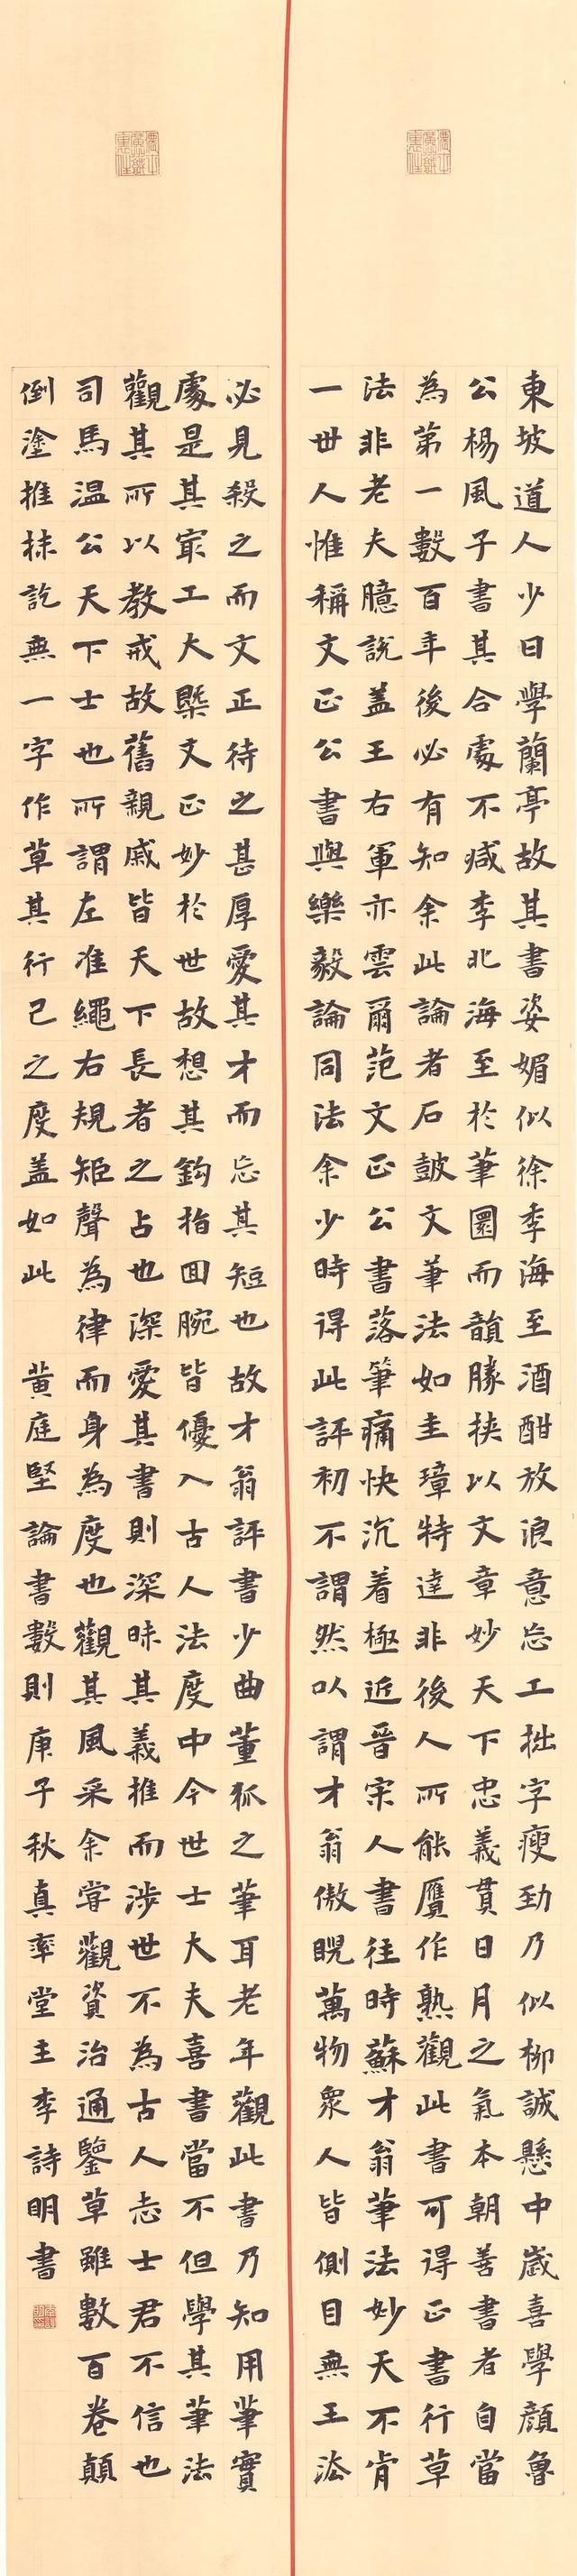 東坡道人少日學蘭亭故其書姿媚似徐季海至酒酣放浪意忘工拙字瘦勁乃似柳誠懸中歲喜學顏魯
公楊風子書其合處不減李北海至於筆圜而韻勝挾以文章妙天下忠義貫日月之氣本朝善書者自當
為第一數百年後必有知余此論者石鼓文筆法如圭璋特達非後人所能贗作熟觀此書可得正書行草
法非老夫臆說盖王右軍亦雲爾范文正公書落筆痛快沉着極近晉宋人書往時蘇才翁筆法妙天不肯
一世人惟稱文正公書與樂毅論同法余少時得此評初不謂然以謂才翁傲睨萬物衆人皆側目無王法
必見殺之而文正待之甚厚愛其才而忘其短也故才翁評書少曲董狐之筆耳老年觀此書乃知用筆實
處是其冣工大槩文正妙於世故想其鈎指囬腕皆優入古人法度中今世士大夫喜書當不但學其筆法
觀其所以教戒故舊親戚皆天下長者之占也深愛其書則深昧其義推而涉世不為古人志士君不信也
司馬温公天下士也所謂左准繩右規矩聲為律而身為度也觀其風采余甞觀資治通鑒草雖數百卷顛
倒塗推抹訖無一字作草其行己之度盖如此 黄庭堅論書數則庚子秋真率堂主李詩明書